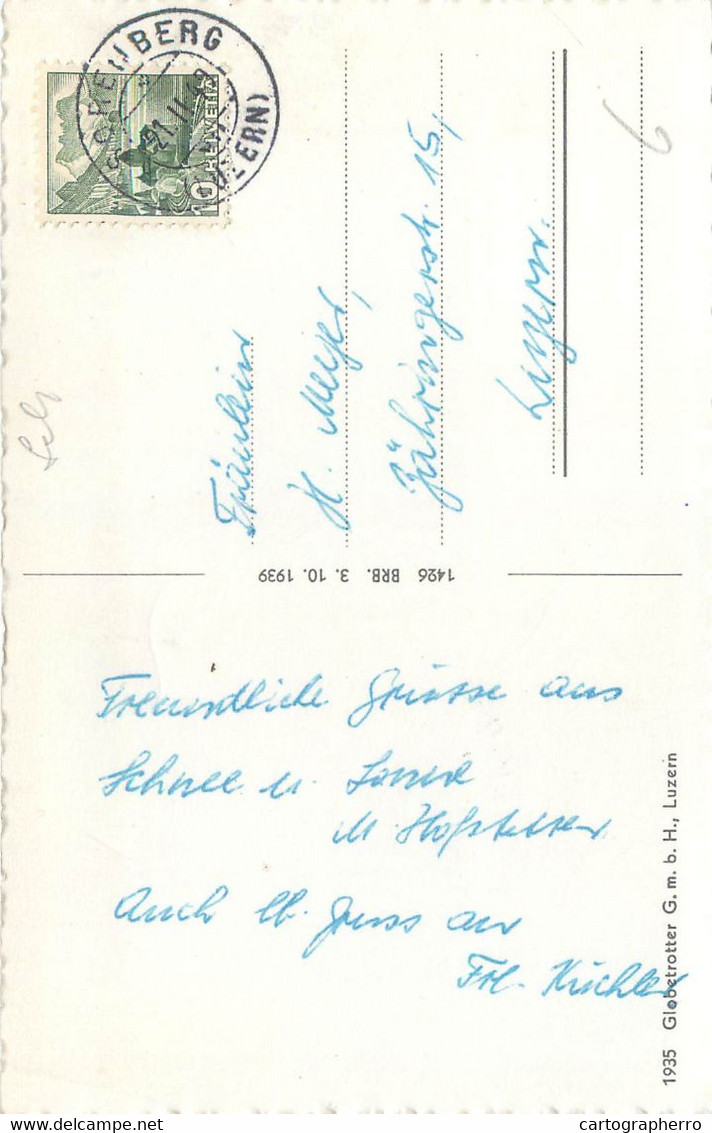 HELVETIA
10
(LUZERN)
6
Fräulein
H. Meyer,
Zähringerstr. 15,
Luzern.
1426 BRB. 3. 10. 1939
Freundliche Grüsse aus
Schnee u. Sonne
M. Hofstetter
Auch lb. Gruss an
Frl. Küchler
1935 Globetrotter G. m. b. H., Luzern
cartographerro